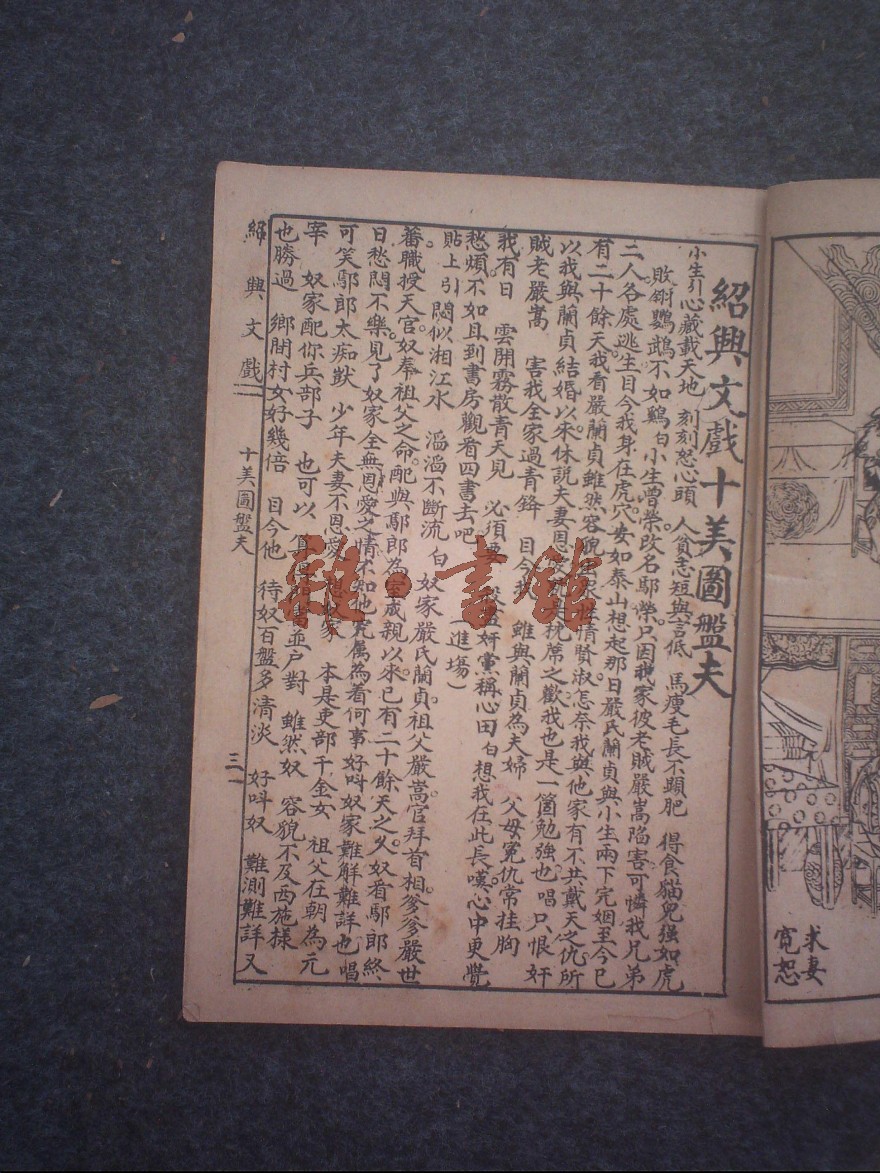 紹興文戲十美圖盤夫
小生引心藏載天地 刻刻恕心頭 人貧志短與言低 馬瘦毛長不顯肥 得食猫兒强如虎
敗翎鸚鵡不如鷄白小生曾榮改名鄢榮只因我家彼老賊嚴嵩陷害可憐我兄弟
二人各處逃生目今我身在虎穴安如泰山想起那日嚴氏蘭貞與小生兩下完姻至今已
有二十餘天我看嚴蘭貞雖然容貌 情賢淑怎奈我與他家有不共戴天之仇所
以我與蘭貞結婚以來休說夫妻恩 枕席之歡我也是一箇勉強也唱 只恨奸
賊老嚴嵩 害我全家過青鋒 目今我 雖與蘭貞為夫婦 父母冤仇常挂胸
我有日 雲開霧散青天見 必須要 奸黨稱心田白想我在此長嘆心中更覺
愁煩不如且到書房觀看四書去吧 (進塲)
貼上引 悶似湘江水 滔滔不斷流 白 奴家嚴氏蘭貞祖父嚴嵩官拜首相爹爹嚴世
蕃職授天官奴奉祖父之命配與鄢郎為室成親以來已有二十餘天之久奴看鄢郎終
日愁悶不樂見了奴家全無恩愛之情不知他究属為着何事好呌奴家難解難詳也唱
可笑鄢郎太痴獃 少年夫妻不恩愛 想奴家 本是吏部千金女 祖父在朝為元
宰 奴家配你兵部子 也可以 算得 並户對 雖然奴 容貌不及西施樣
也勝過 鄉間村女好幾倍 目今他 待奴百盤多清淡 好呌奴 難測難詳又
紹興文戲 十美圖盤夫 三一
求妻
寬恕
雜·書館